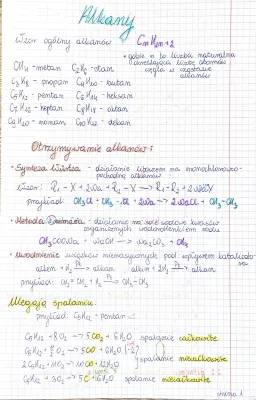 Alkany
Wzór ogólny alkanów CnH2n+2
* gdzie n to liczba naturalna
określająca liczbę atomów
węgla w cząsteczce
alkanów
CH4 - metan C2H6 - etan
C3H8 - propan C4H10 - butan
C5H12 - pentan C6H14 - heksan
C7H16 - heptan C8H18 - oktan
C9H20 - nonan C10H22 - dekan
Otrzymywanie alkanów:
• Synteza Würtza - działanie sodem na
pochodne alkanów
wzór: R1-X + 2Na + R2-X → R1-R2 + 2NaX
przykład: CH3Cl + CH3-Cl + 2Na → 2NaCl + CH3-CH3
• Metoda Dumasa - działanie na sole sodowe kwasów
organicznych wodorotlenkiem sodu
CH3COONa + NaOH → Na2CO3 + CH4
• uwodornienie związków nienasyconych pod wpływem katalizatora
alken + H2 → alkan alkin + 2H2 → alkan
przykład: CH2=CH2 + H2 → CH3-CH3
Ulegają spalaniu:
przykład: C5H12 - pentan
C5H12 + 8O2 → 5CO2 + 6H2O spalanie całkowite
C5H12 + O2 → 5CO + 6H2O
2C5H12 + 11O2 → 10CO + 12H2O spalanie niecałkowite
C5H12 + 3O2 → 5C + 6H2O spalanie niecałkowite
strona 1